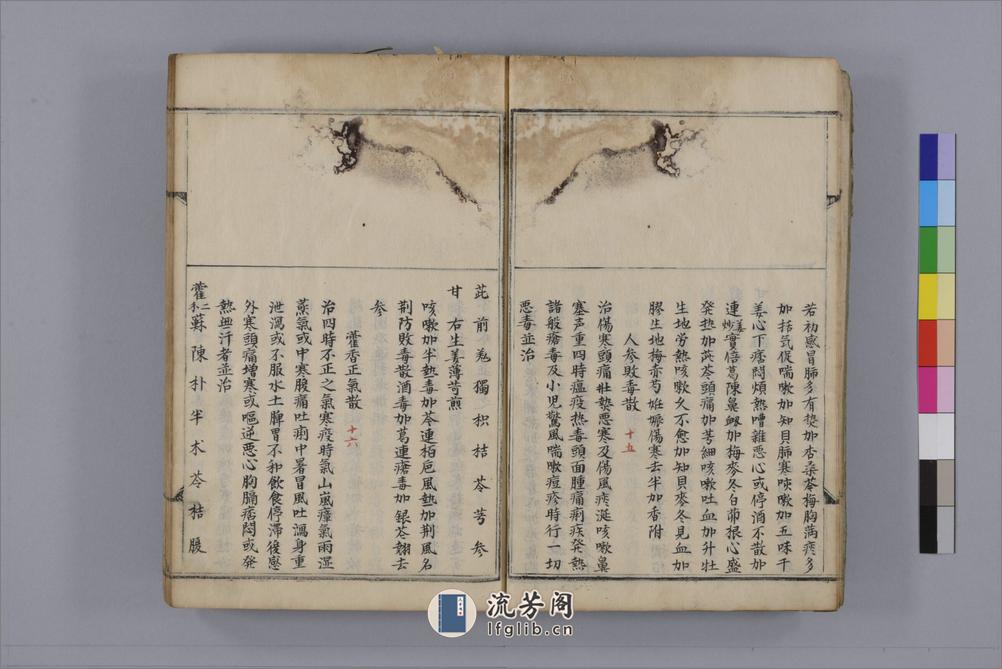 若初感冒肺多有热加杏桑芩梅胸满痰多
加桔芄促喘嗽加知貝肺寒咳嗽加五味干
姜心下痞悶煩熱嘈雜惡心或停消不散加
連炒姜實倍葛陳鼻衂加梅麥冬白茆根心盛
発热加芪芩頭痛加芎細咳嗽吐血加升牡
生地劳熱咳嗽久不愈加知貝麥冬見血加
膠生地梅赤芍姙娠傷寒去半加香附
人参敗毒散 十五
治傷寒頭痛壯熱惡寒及傷風痰涎咳嗽鼻
塞声重四時瘟疫热毒頭面腫痛痢疾発熱
諸般瘡毒及小児驚風喘嗽痘疹時行一切
惡毒並治
芘 前 羌 獨 枳 桔 苓 芎 参
甘 右生姜薄苛煎
咳嗽加半熱毒加芩連柏巵風热加荆風名
荆防敗毒散酒毒加葛連瘡毒加銀苍翘去
参
藿香正氣散 十六
治四時不正之氣寒疫時氣山嵐瘴氣雨湿
蒸氣或中寒腹痛吐痢中暑冒風吐瀉身重
泄瀉或不服水土脾胃不和飲食停滞復感
外寒頭痛增寒或嘔逆惡心胸膈痞悶或発
熱無汗者並治
藿 二 蘇 陳 朴 半 术 苓 桔 腹
流芳阁
lfglib.cn